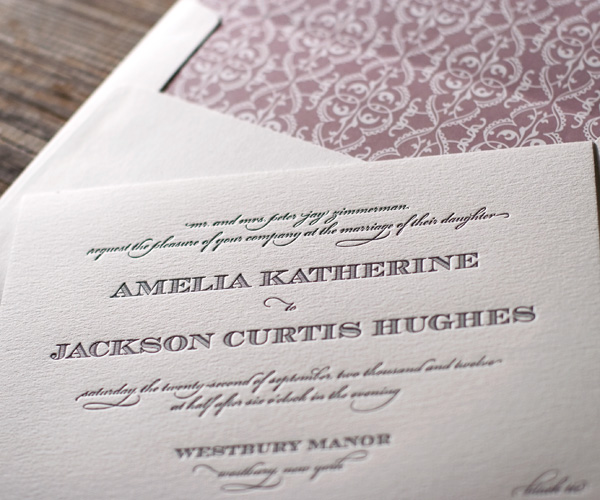 mr. and mrs. peter jay zimmerman
request the pleasure of your company at the marriage of their daughter
AMELIA KATHERINE
to
JACKSON CURTIS HUGHES
saturday, the twenty-second of september, two thousand and twelve
at half after six o'clock in the evening
WESTBURY MANOR
westbury, new york
black tie